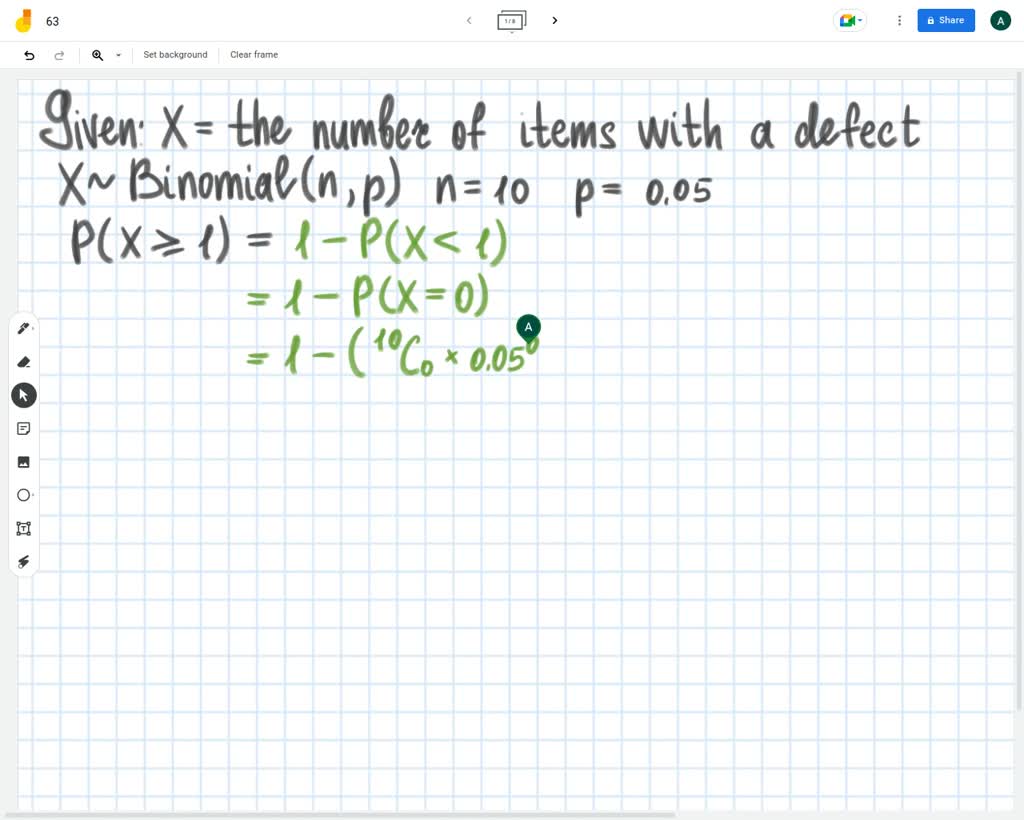 63
1 / 8
Share
A
Set background
Clear frame
Given: X = the number of items with a defect
X ~ Binomial(n, p) n = 10 p = 0.05
P(X ⩾ 1) = 1 − P(X < 1)
= 1 − P(X = 0)
A
= 1 − (¹⁰C₀ × 0.05⁰